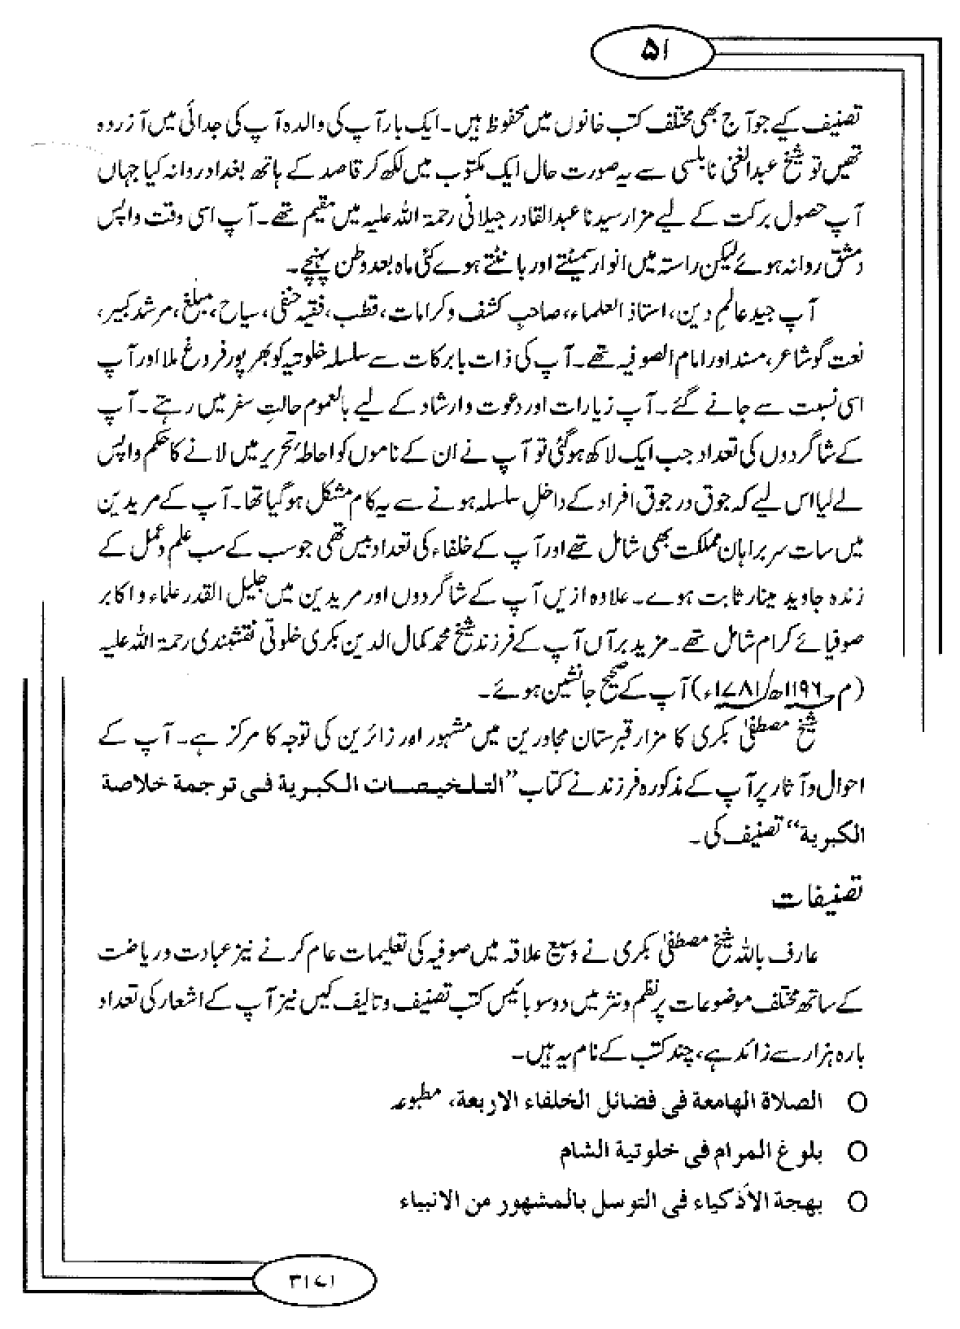 ۵۱
تصنیف کیے جو آج بھی مختلف کتب خانوں میں محفوظ ہیں۔ ایک بار آپ کی والدہ آپ کی جدائی میں آزردہ
تھیں تو شیخ عبدالغنی نابلسی سے یہ صورت حال ایک مکتوب میں لکھ کر قاصد کے ہاتھ بغداد روانہ کیا جہاں
آپ حصول برکت کے لیے مزار سیدنا عبدالقادر جیلانی رحمۃ اللہ علیہ میں مقیم تھے۔ آپ اسی وقت واپس
دمشق روانہ ہوئے لیکن راستہ میں انوار سمیٹتے اور بانٹتے ہوے کئی ماہ بعد وطن پہنچے۔
آپ جید عالم دین، استاذ العلماء، صاحبِ کشف و کرامات، قطب، فقیہ حنفی، سیاح، مبلغ، مرشد کبیر،
نعت گو شاعر، مسند اور امام الصوفیہ تھے۔ آپ کی ذات بابرکات سے سلسلہ خلوتیہ کو بھرپور فروغ ملا اور آپ
اسی نسبت سے جانے گئے۔ آپ زیارات اور دعوت وارشاد کے لیے بالعموم حالتِ سفر میں رہتے۔ آپ
کے شاگردوں کی تعداد جب ایک لاکھ ہوگئی تو آپ نے ان کے ناموں کو احاطۂ تحریر میں لانے کا حکم واپس
لے لیا اس لیے کہ جوق در جوق افراد کے داخلِ سلسلہ ہونے سے یہ کام مشکل ہوگیا تھا۔ آپ کے مریدین
میں سات سربراہان مملکت بھی شامل تھے اور آپ کے خلفاء کی تعداد بیس تھی جو سب کے سب علم و عمل کے
زندہ جاوید مینار ثابت ہوے۔ علاوہ ازیں آپ کے شاگردوں اور مریدین میں جلیل القدر علماء و اکابر
صوفیائے کرام شامل تھے۔ مزید برآں آپ کے فرزند شیخ محمد کمال الدین بکری خلوتی نقشبندی رحمۃ اللہ علیہ
(م۔۱۱۹۶ھ/۱۷۸۱ء) آپ کے صحیح جانشین ہوئے۔
شیخ مصطفیٰ بکری کا مزار قبرستان مجاورین میں مشہور اور زائرین کی توجہ کا مرکز ہے۔ آپ کے
احوال و آثار پر آپ کے مذکورہ فرزند نے کتاب ”التلخیصات الکبریة فی ترجمة خلاصة
الکبریة“ تصنیف کی۔
تصنیفات
عارف باللہ شیخ مصطفیٰ بکری نے وسیع علاقہ میں صوفیہ کی تعلیمات عام کرنے نیز عبادت و ریاضت
کے ساتھ مختلف موضوعات پر نظم و نثر میں دو سو بائیس کتب تصنیف و تالیف کیں نیز آپ کے اشعار کی تعداد
بارہ ہزار سے زائد ہے، چند کتب کے نام یہ ہیں۔
○ الصلاة الهامعة فی فضائل الخلفاء الاربعة، مطبوعہ
○ بلوغ المرام فی خلوتیة الشام
○ بهجة الأذکیاء فی التوسل بالمشهور من الانبیاء
۳۱۷۱